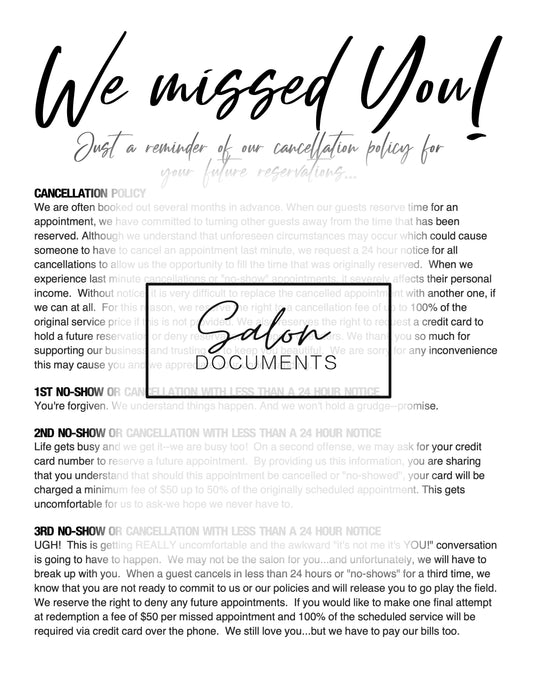 We missed You!
Just a reminder of our cancellation policy for
your future reservations...
CANCELLATION POLICY
We are often booked out several months in advance. When our guests reserve time for an
appointment, we have committed to turning other guests away from the time that has been
reserved. Although we understand that unforeseen circumstances may occur which could cause
someone to have to cancel an appointment last minute, we request a 24 hour notice for all
cancellations to allow us the opportunity to fill the time that was originally reserved. When we
experience last minute cancellations or "no-show" appointments, it severely affects their personal
income. Without notice it is very difficult to replace the cancelled appointment with another one, if
we can at all. For this reason, we reserve the right to a cancellation fee of up to 100% of the
original service price if this is not provided. We also reserves the right to request a credit card to
hold a future reservation or deny . We thank you so much for
supporting our business and trusting to keep you beautiful. We are sorry for any inconvenience
this may cause you and we
Salon
DOCUMENTS
1ST NO-SHOW OR CANCELLATION WITH LESS THAN A 24 HOUR NOTICE
You're forgiven. We understand things happen. And we won't hold a grudge--promise.
2ND NO-SHOW OR CANCELLATION WITH LESS THAN A 24 HOUR NOTICE
Life gets busy and we get it--we are busy too! On a second offense, we may ask for your credit
card number to reserve a future appointment. By providing us this information, you are sharing
that you understand that should this appointment be cancelled or "no-showed", your card will be
charged a minimum fee of $50 up to 50% of the originally scheduled appointment. This gets
uncomfortable for us to ask-we hope we never have to.
3RD NO-SHOW OR CANCELLATION WITH LESS THAN A 24 HOUR NOTICE
UGH! This is getting REALLY uncomfortable and the awkward "it's not me it's YOU!" conversation
is going to have to happen. We may not be the salon for you...and unfortunately, we will have to
break up with you. When a guest cancels in less than 24 hours or "no-shows" for a third time, we
know that you are not ready to commit to us or our policies and will release you to go play the field.
We reserve the right to deny any future appointments. If you would like to make one final attempt
at redemption a fee of $50 per missed appointment and 100% of the scheduled service will be
required via credit card over the phone. We still love you...but we have to pay our bills too.